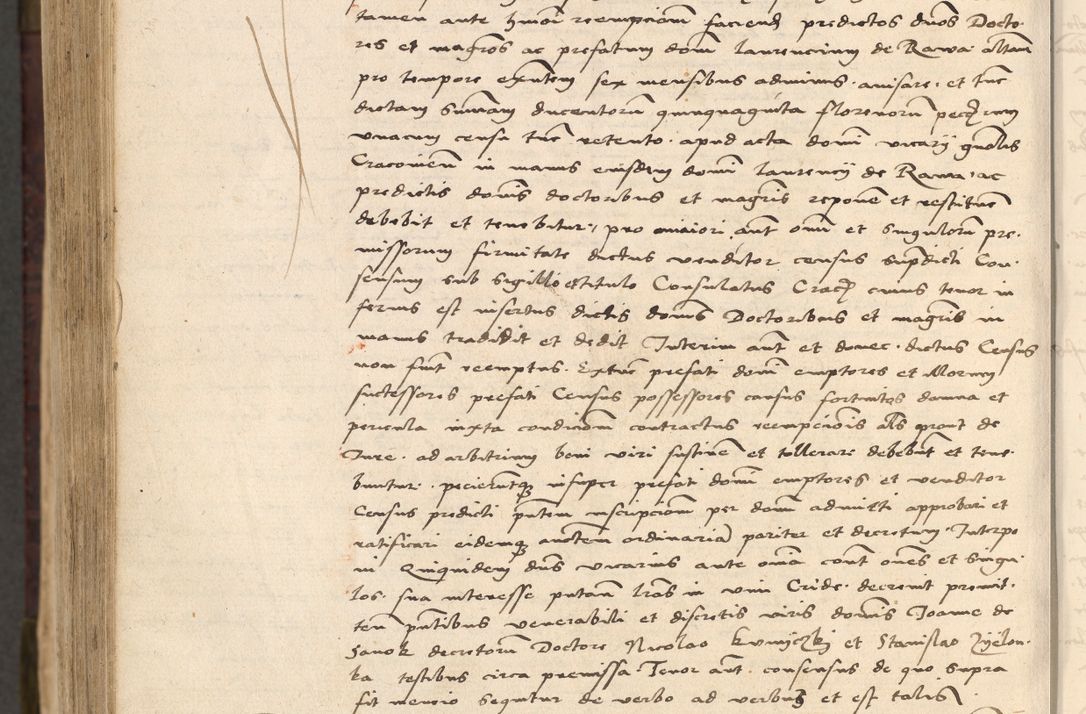 tamen ante hmoi reempcionem faciend predictos duos Docto-
res et magros ac prefatum dom laurencium de Rawa altam
pro tempore exntem sex mensibus adminus avisare, et tunc
dictam summam ducentorum quinquaginta florenorum pectm
unacum censu tunc retento apud acta domi vicarij gnalis
Cracovien in manus eiusdem domi laurencij de Rawa, ac
predictis domis doctoribus et magris reponere et restituere
debebit et tenebitur, pro maiori aut omi et singulorum pre-
missorum firmitate dictus venditor census supdicti Con-
sensum sub sigillo et titulo Consulatus Crac cuius tenor in
ferius est insertus dictis domis Doctoribus et magris in
manus tradidit et dedit Interim aut et donec dictus Census
non fuit reemptus. Extunc prefati domi emptores et illorum
successores prefati Census possessores casus fortuitos damna et
pericula iuxta condicionem contractus reempcionis als prout de
Iure ad arbitrium boni viri sustinere et tollerare debebunt et tene-
buntur. pecieruntque insuper prefati domi emptores et venditor
Census predicti pntem inscripcionem per domi admitti approbari et
ratificari eidemque auctem ordinariam pariter et decretum Interpo
ni Quiquidem dns vicarius ante omia cont omes et singu
los sua interesse putan lras in vim Cride decrevit premit-
ten pntibus venerabili et discretis viris domis Joanne de
Sanok decretorum Doctore Nicolao kunyczki et Stanislao Zyelon-
ka testibus circa premissa Tenor aut consensus de quo supra
fit mencio sequitur de verbo ad verbum et est talis